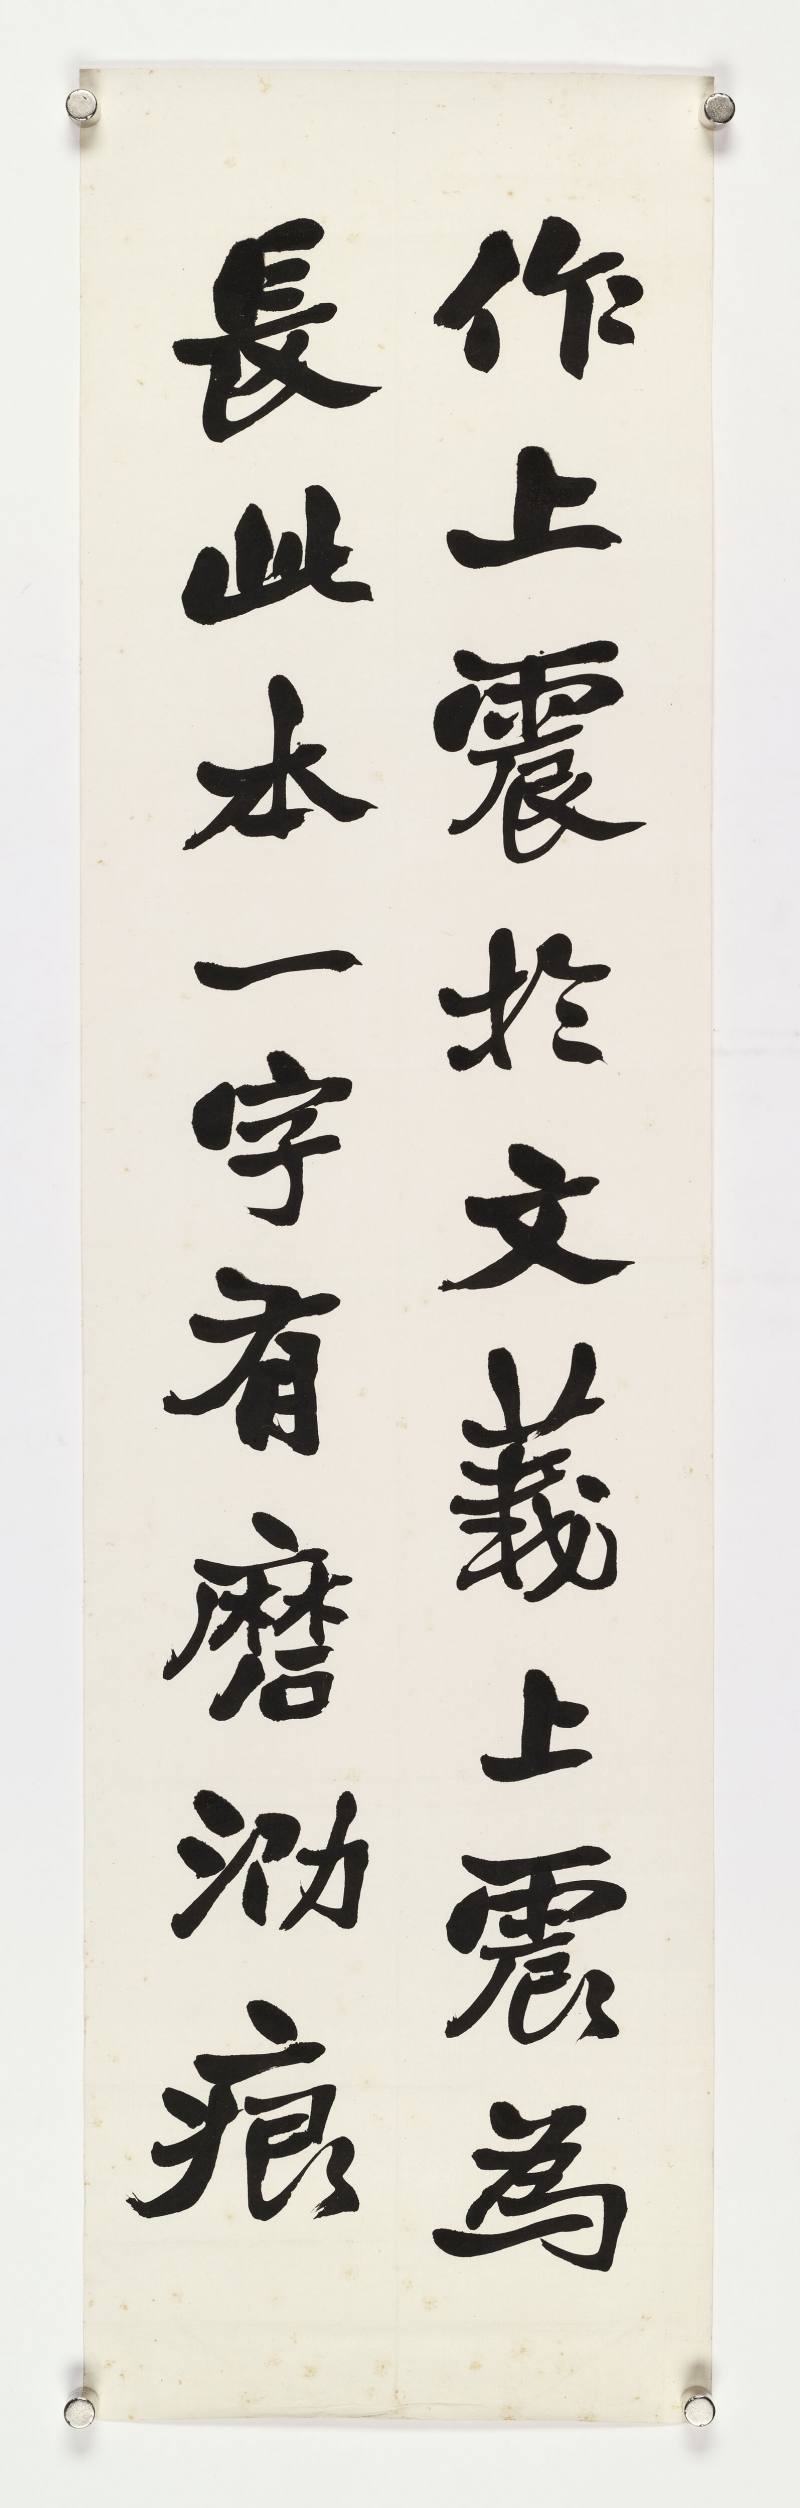 作上震於文義上震為
長此本一字有磨泐痕